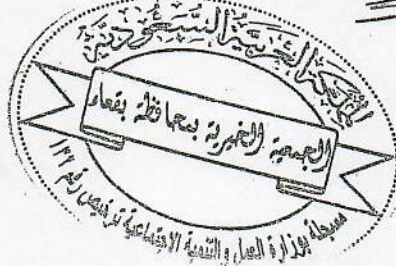 المملكة العربية السعودية
الجمعية الخيرية بمحافظة بقعاء
مسجلة بوزارة العمل والتنمية الاجتماعية ترخيص رقم ١٣٦